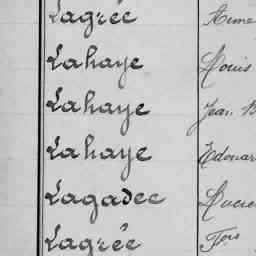 Lagrée Aime
Lahaye Louis
Lahaye Jean B
Lahaye Edouar
Lagadec Lucie
Lagrée Fçois